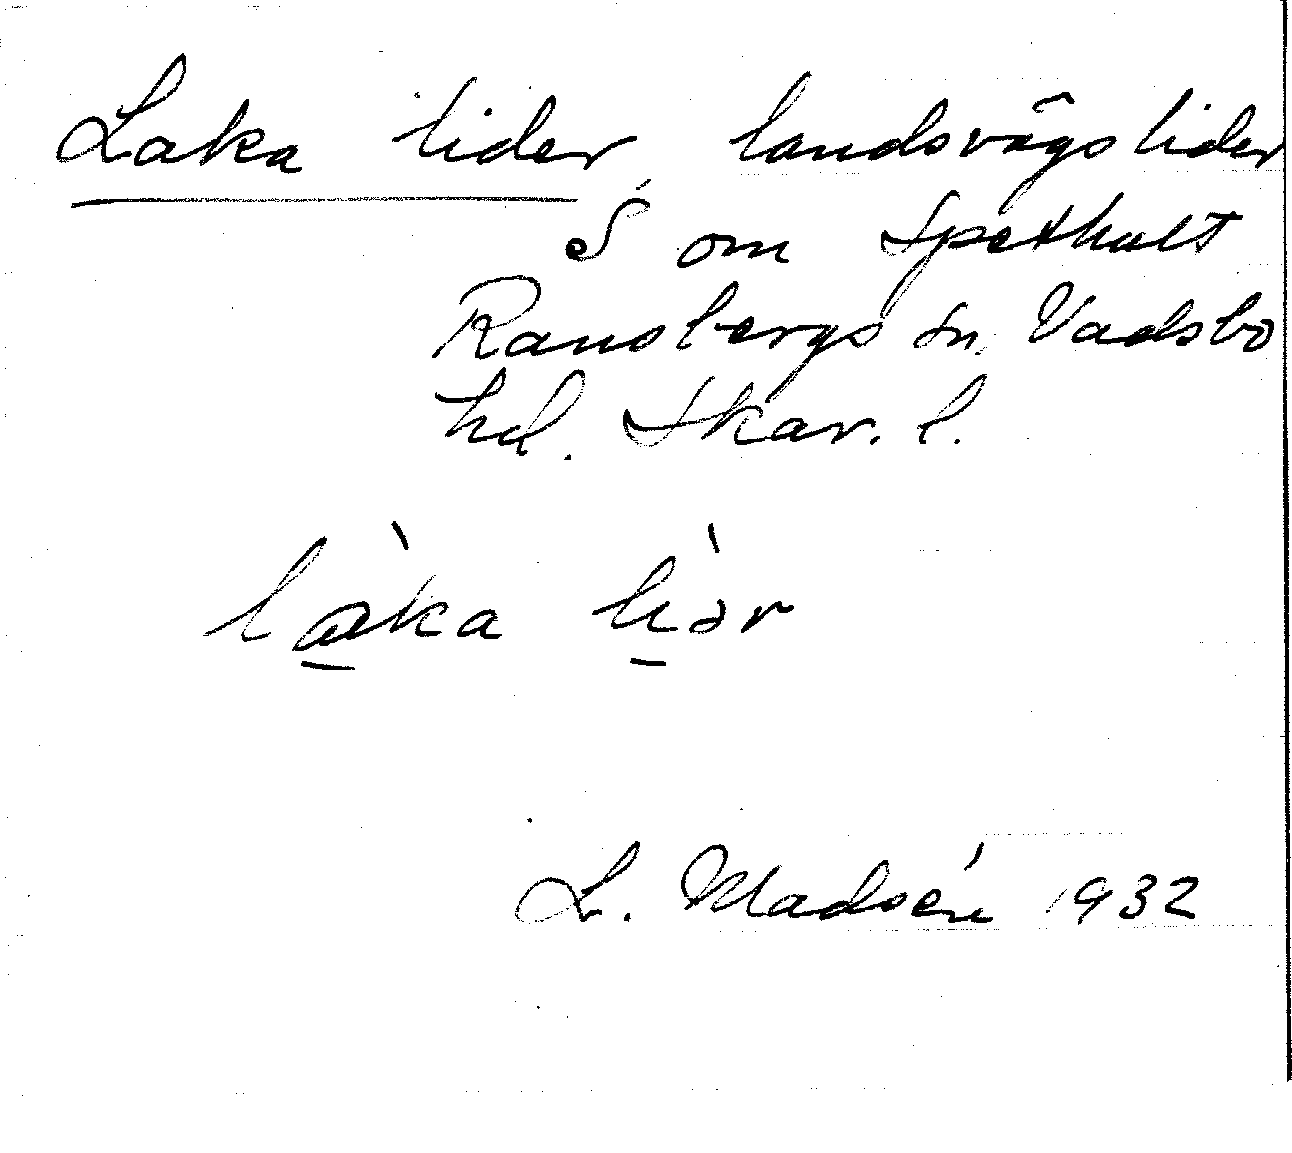 Laka lider, landsvägslider
S om Spethult
Ransbergs sn, Vadsbo
hd. Skar. l.
là̱ka lì̱ər
L. Madsén 1932